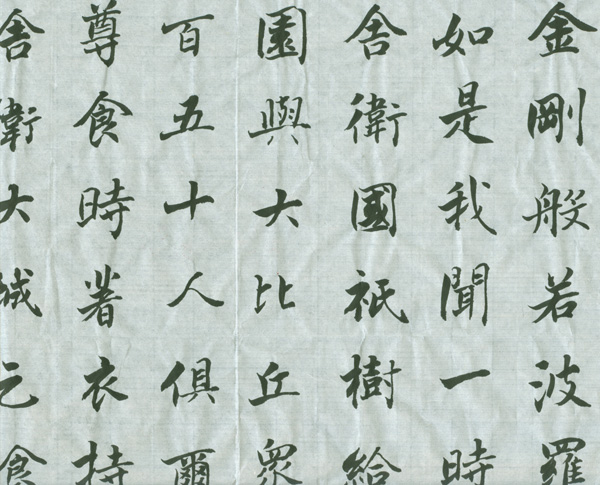 金剛般若波羅
如是我聞一時
舍衛國祇樹給
園與大比丘眾
百五十人俱爾
尊食時著衣持
舍衛大城乞食